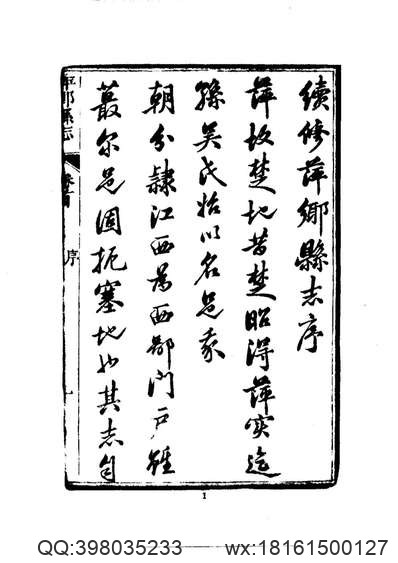 續修萍鄉縣志序
萍故楚地昔楚昭得萍實迄
孫吳氏始以名邑我
朝分隸江西爲西鄙門戶雖
蕞尔邑固扼塞地也其志自
萍鄉縣志
卷首
序
一
1
QQ:398035233
wx:18161500127